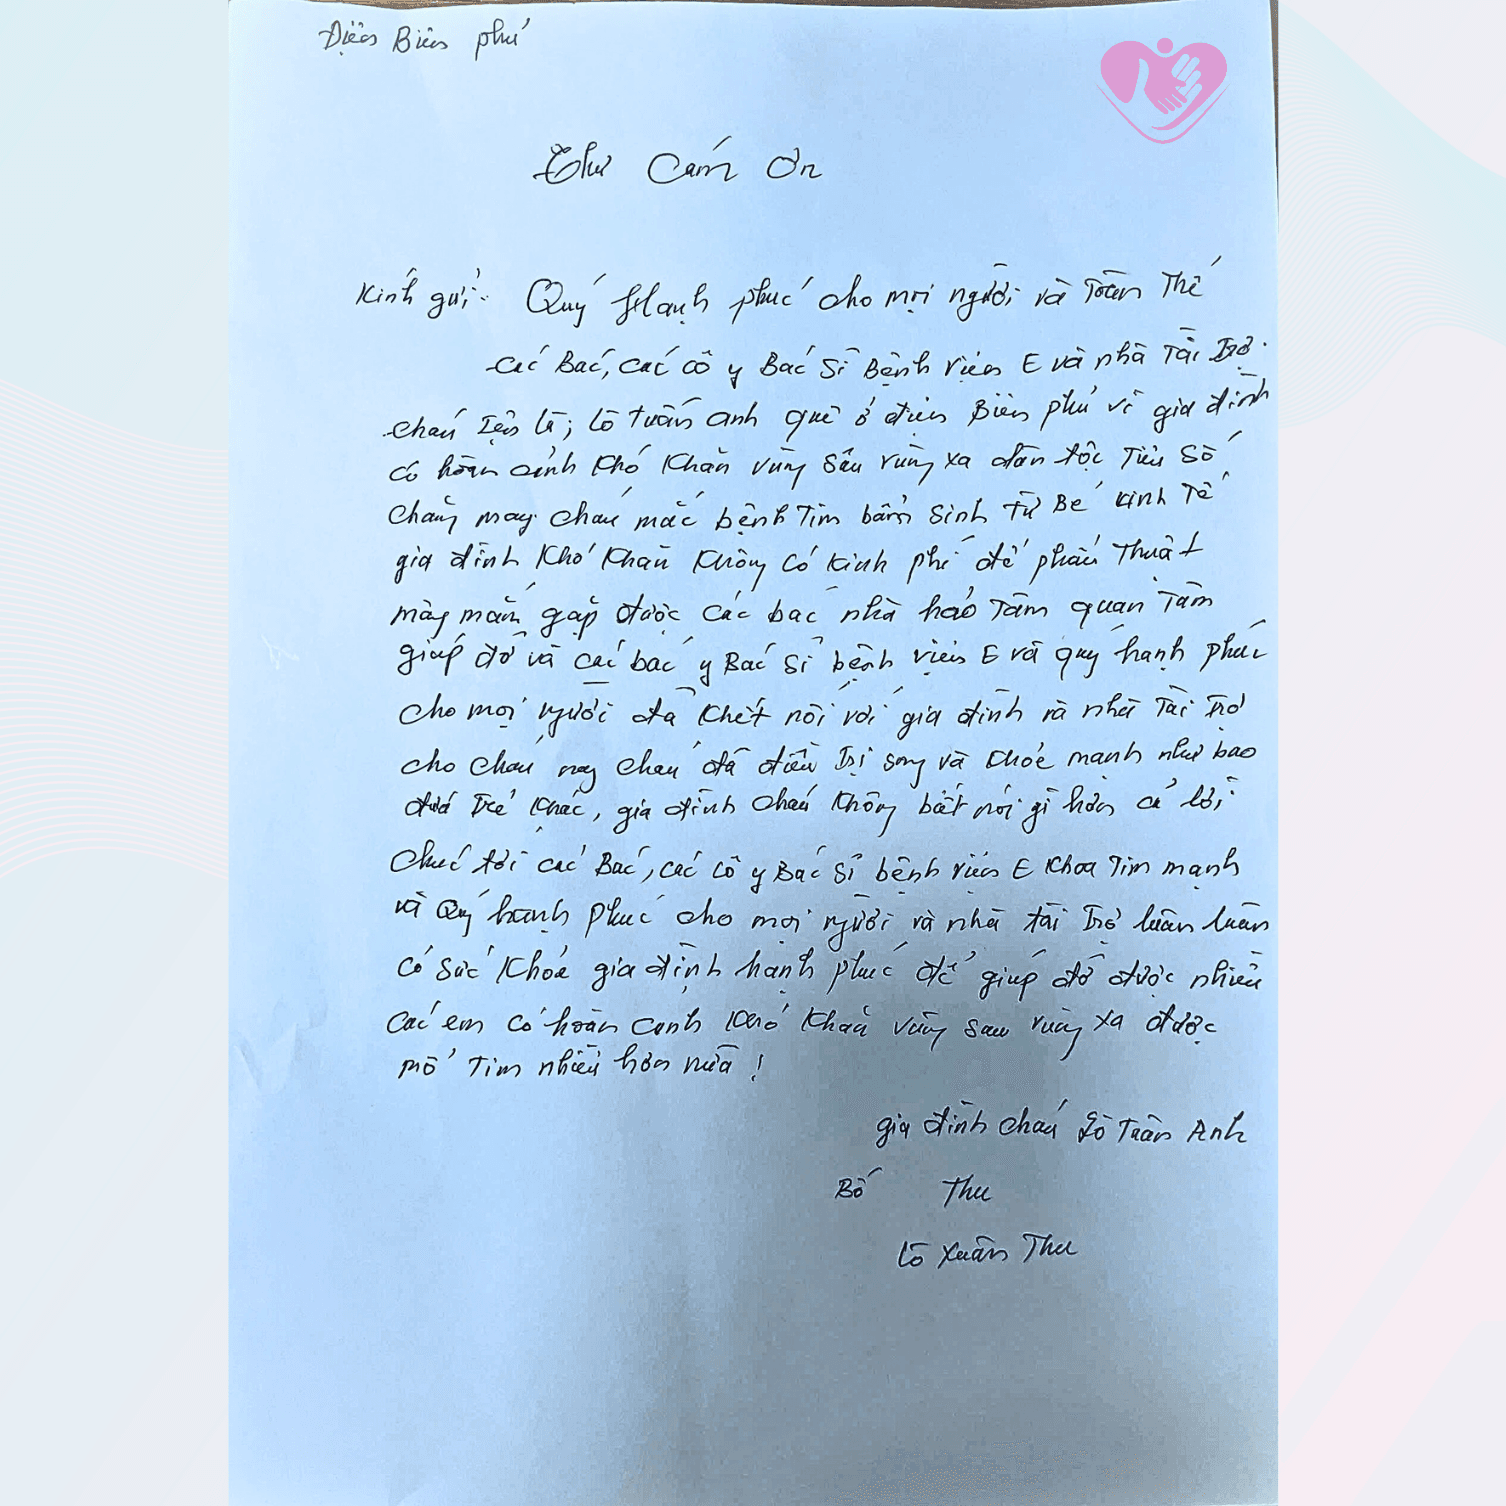 Điện Biên phủ
Thư Cám Ơn
Kính gửi: Quý Hạnh phúc cho mọi người và Toàn Thế
các Bác, các cô y Bác Sĩ Bệnh viện E và nhà Tài Trợ.
cháu Tên là; Lò Tuấn anh quê ở điện Biên phủ vì gia đình
có hoàn cảnh Khó Khăn vùng sâu vùng xa dân tộc Tiểu Số
chẳng may cháu mắc bệnh Tim bẩm Sinh Từ Bé Kinh Tế
gia đình Khó Khăn Không có Kinh phí để phẫu Thuật
mày mắn gặp được các bác nhà hảo Tâm quan Tâm
giúp đỡ và các bác y Bác Sĩ bệnh viện E và quỹ hạnh phúc
cho mọi người đã Khết nối với gia đình và nhà Tài Trợ
cho cháu nay cháu đã điều Trị song và Khỏe mạnh như bao
đứa Trẻ Khác, gia đình cháu Không biết nói gì hơn cả lời
chúc tới các Bác, các cô y Bác Sĩ bệnh viện E Khoa Tim mạnh
và Quý hạnh phúc cho mọi người và nhà tài Trợ luân luân
có sức Khỏe gia định hạnh phúc để giúp đỡ được nhiều
các em có hoàn cảnh Khó Khăn vùng sau vùng xa được
mổ Tim nhiều hơn nữa!
gia đình cháu Lò Tuấn Anh
Bố Thu
Lò Xuân Thu